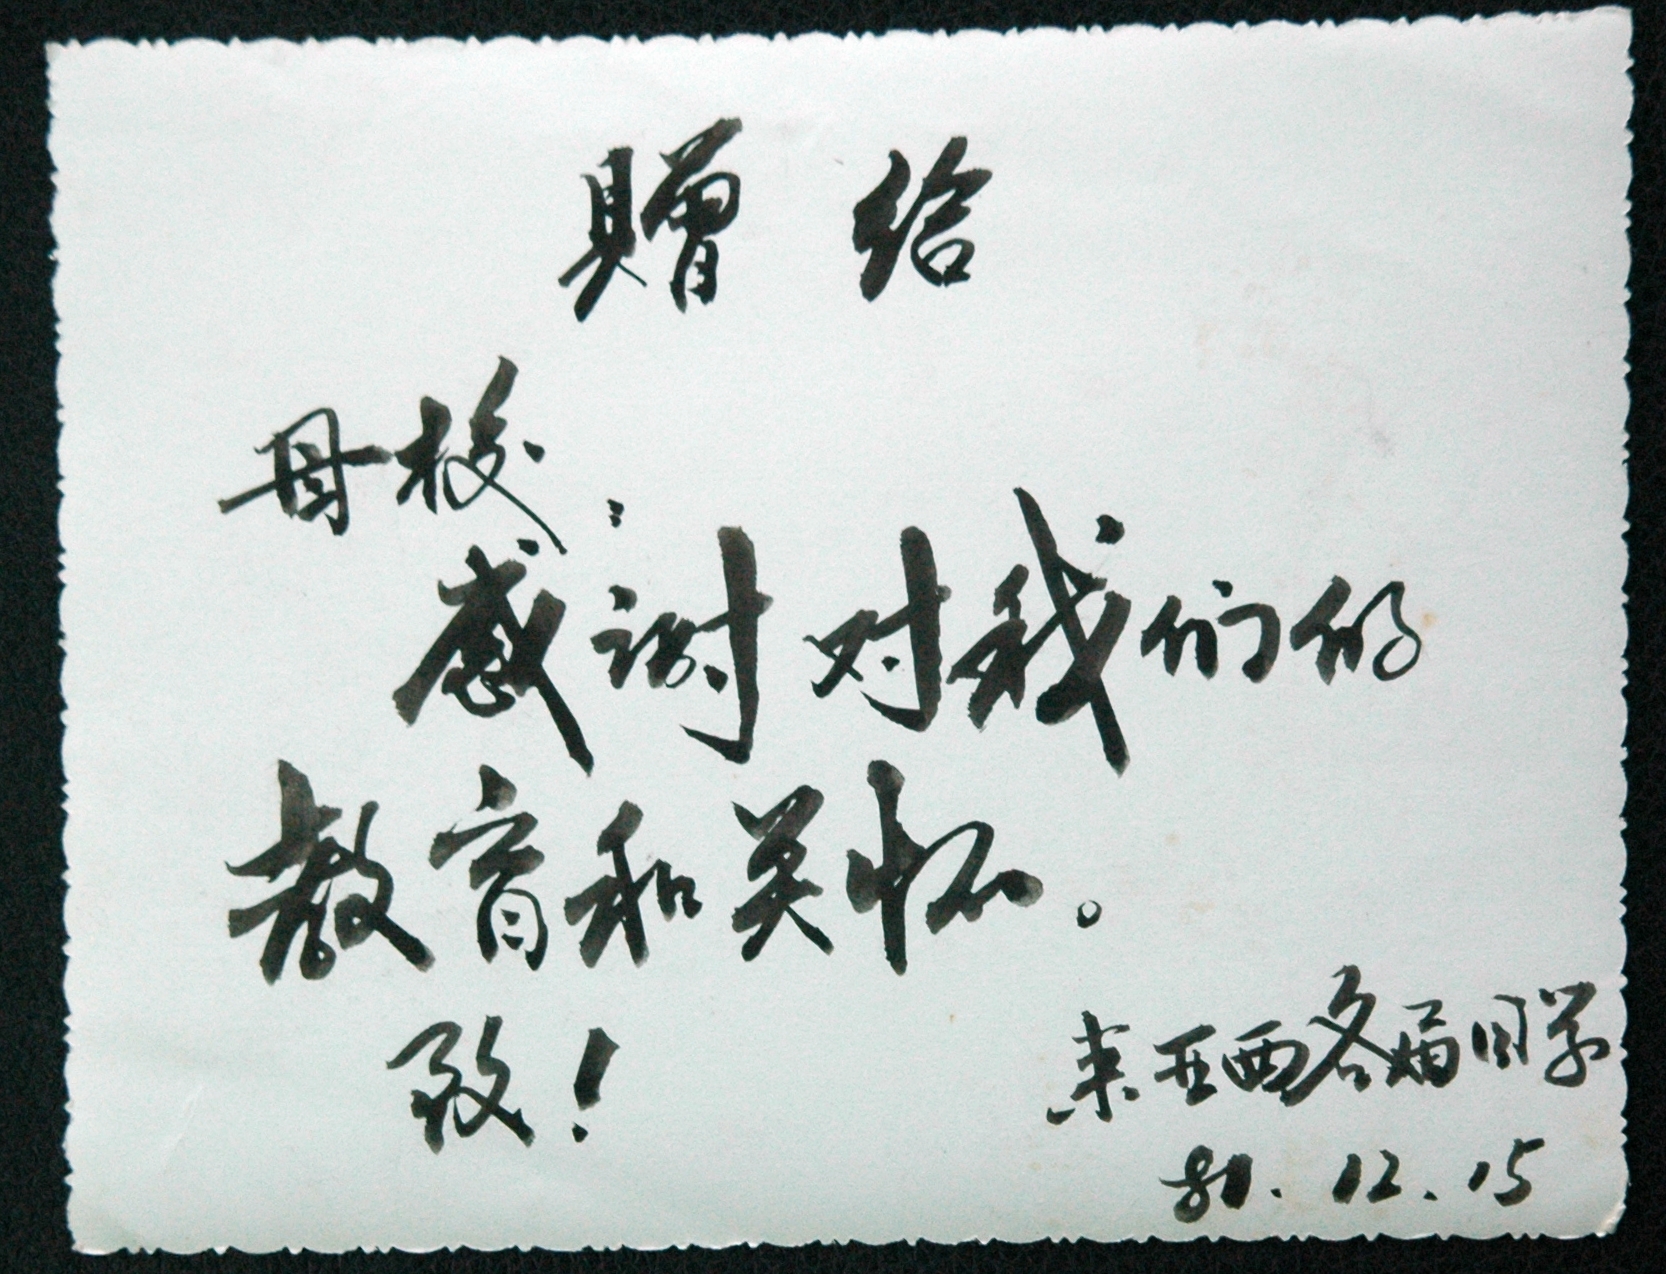 贈给
母校：
感谢对我们的
教育和关怀。
致！
来亚西各届同学
81.12.15